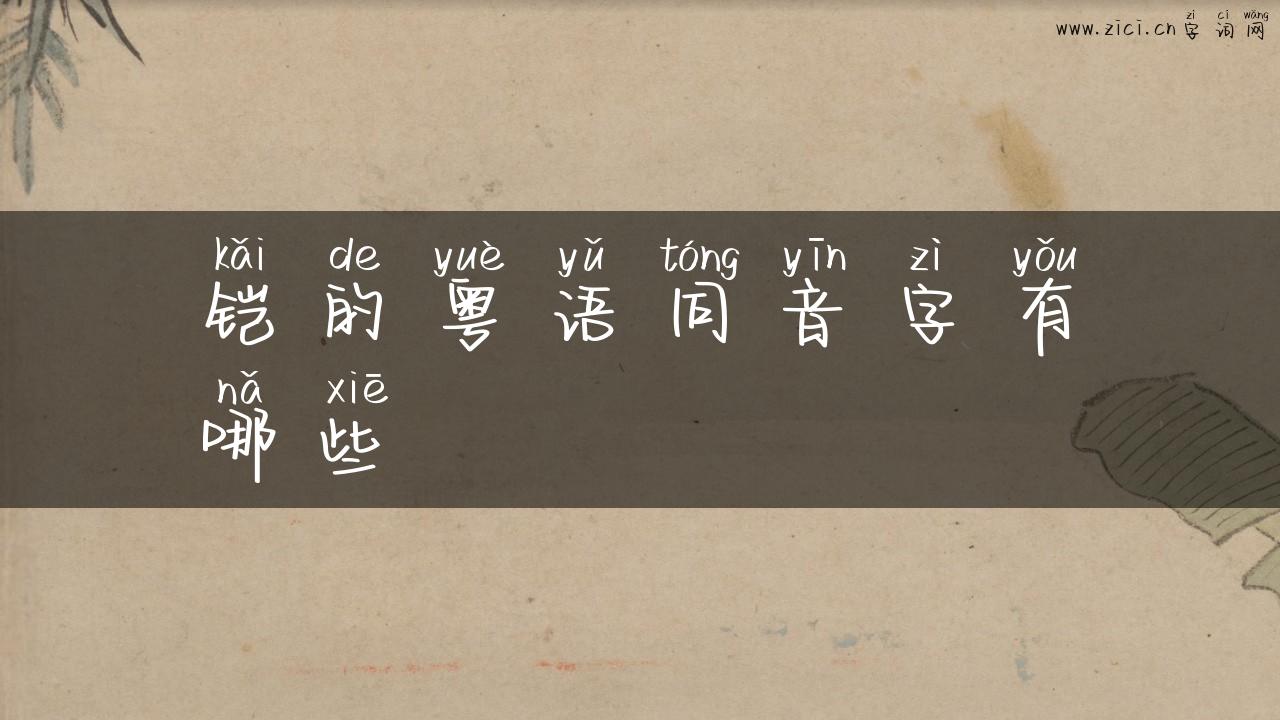 zì cí wǎng
www.zici.cn 字词网
kǎi de yuè yǔ tóng yīn zì yǒu
铠的粤语同音字有
nǎ xiē
哪些